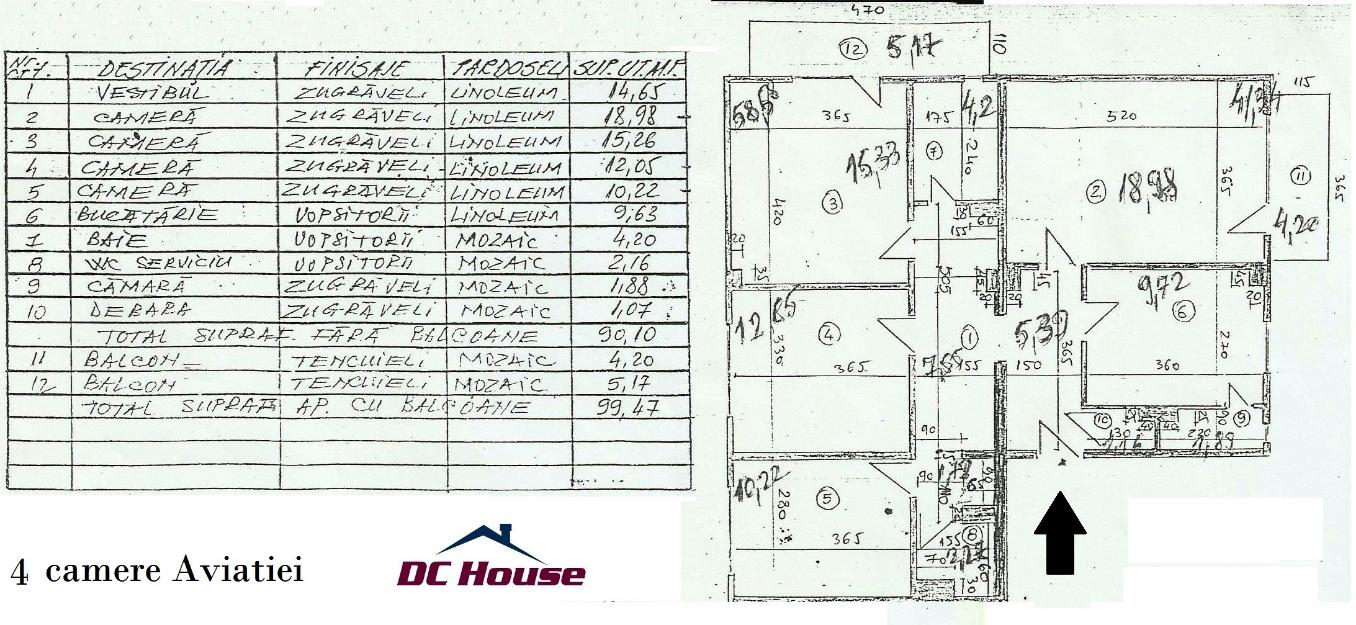 NR. CRT. DESTINAȚIA FINISAJE PARDOSELI SUP. UT. M.P.
1 VESTIBUL ZUGRĂVELI LINOLEUM 14,65
2 CAMERĂ ZUGRĂVELI LINOLEUM 18,98
3 CAMERĂ ZUGRĂVELI LINOLEUM 15,26
4 CAMERĂ ZUGRĂVELI LINOLEUM 12,05
5 CAMERĂ ZUGRĂVELI LINOLEUM 10,22
6 BUCĂTĂRIE VOPSITORII LINOLEUM 9,63
7 BAIE VOPSITORII MOZAIC 4,20
8 WC SERVICIU VOPSITORII MOZAIC 2,16
9 CĂMARĂ ZUGRĂVELI MOZAIC 1,88
10 DEBARA ZUGRĂVELI MOZAIC 1,07
TOTAL SUPRAF. FĂRĂ BALCOANE 90,10
11 BALCON TENCUIELI MOZAIC 4,20
12 BALCON TENCUIELI MOZAIC 5,17
TOTAL SUPRAF. AP. CU BALCOANE 99,47
4 camere Aviatiei
DC House
470
12 5,17 110
585 365 175 4,2 520 115
15,33 7 240 11
3 420 2 18,98 365 365
4,20
60
155
20 35 505 45 9,72 45
20 20 20
12,85 4 330 1 5,39 6 270
365 155 150 365 360
90 10 40 40 90 9
130 220
10,22 5 280 90 65 90
365 155 8
70 2,27 60
30